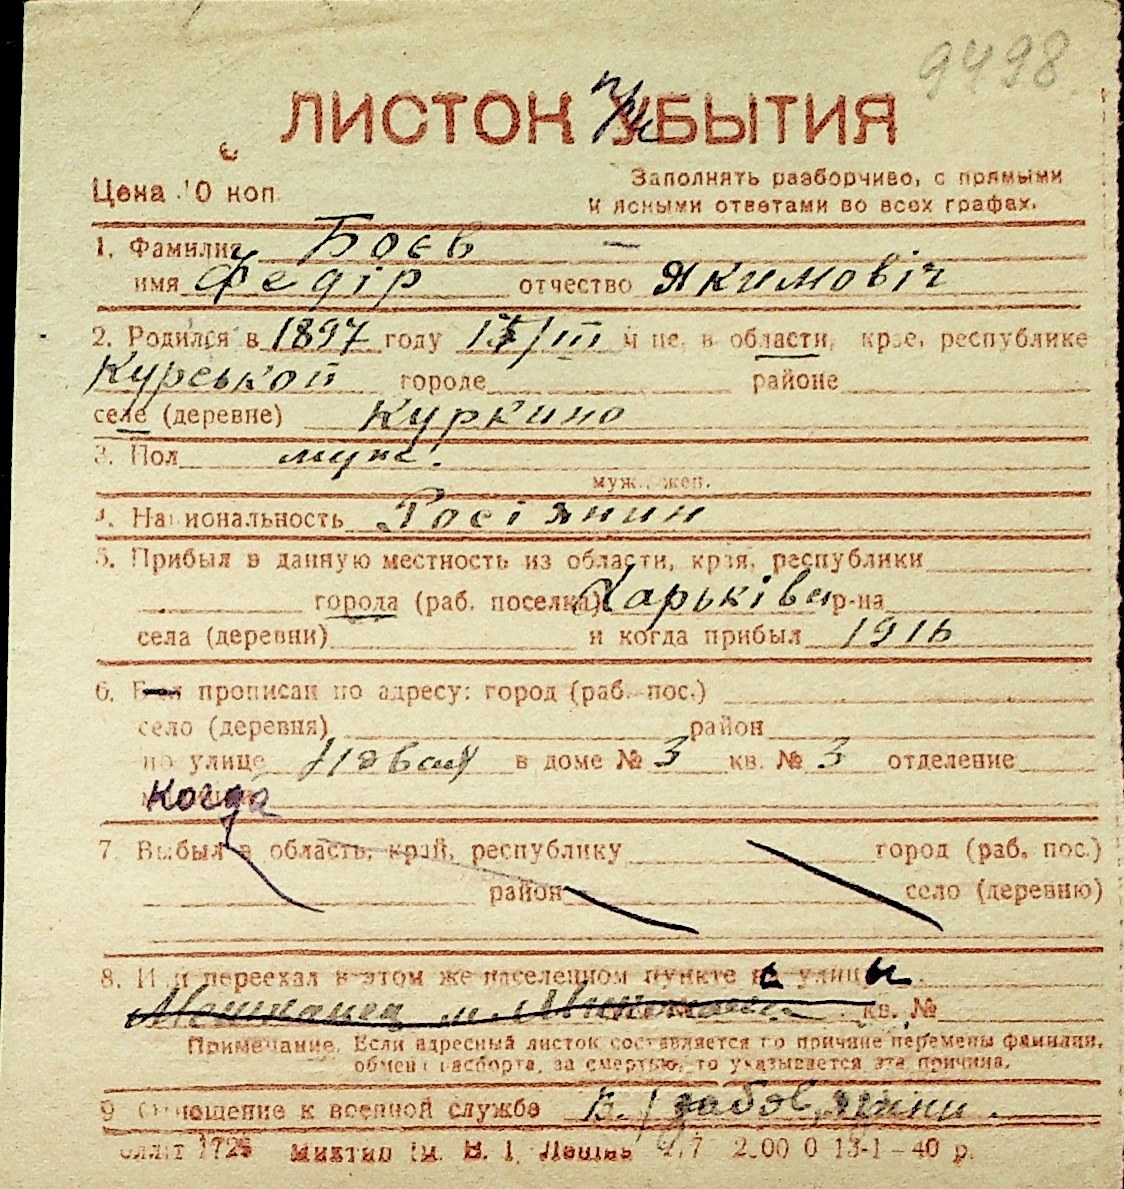 9498
ЛИСТОК УБЫТИЯ
Цена 10 коп
Заполнять разборчиво, с прямыми
и ясными ответами во всех графах.
1. Фамилия Боєв —
имя Федір отчество Якимовіч
2. Родился в 1897 году 15/III м-це, в области, крае, республике
Курській городе районе
селе (деревне) Куркино
3. Пол муж.
муж., жен.
4. Национальность Росіянин
5. Прибыл в данную местность из области, края, республики
города (раб. поселка) Харьків р-на
села (деревни) и когда прибыл 1916
6. Был прописан по адресу: город (раб. пос.)
село (деревня) район
по улице в доме № 3 кв. № 3 отделение
когда
7. Выбыл в область, край, республику город (раб. пос.)
район село (деревню)
8. Или переехал в этом же населенном пункте с улицы
кв. №
Примечание. Если адресный листок составляется по причине перемены фамилии,
обмена паспорта, за смертью, то указывается эта причина.
9. Отношение к военной службе
1726 Миктип ім. В. І. Леніна 2.00 0 13-1-40 р.